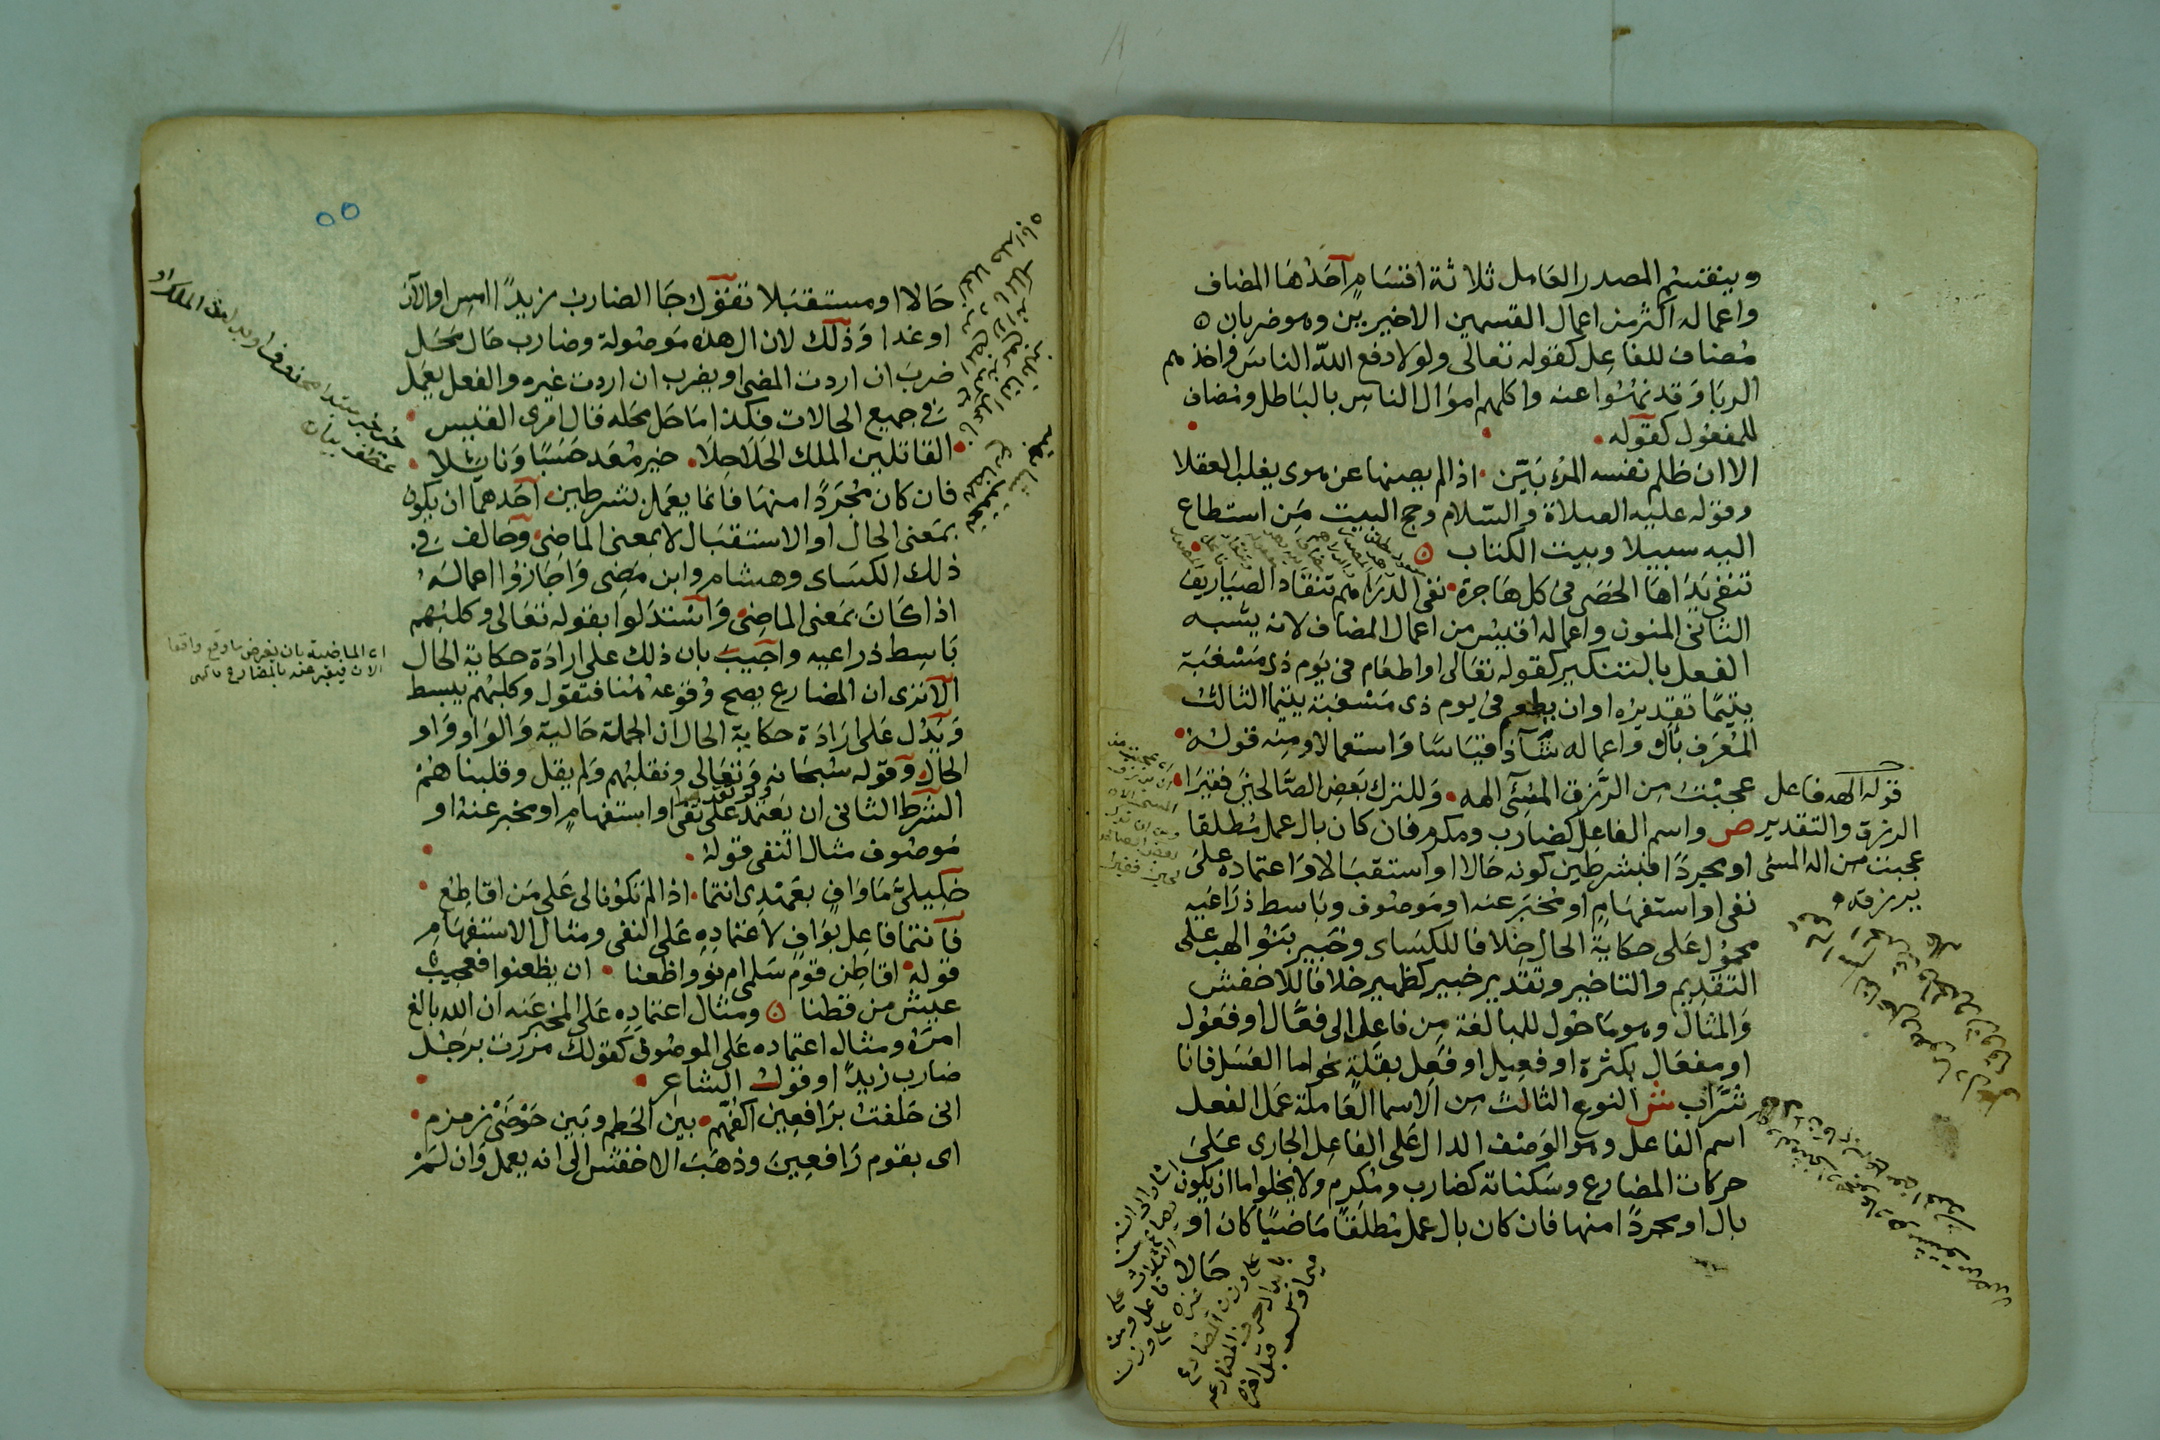 وينقسم المصدر العامل ثلاثة اقسام احدها المضاف
واعماله اكثر من اعمال القسمين الاخيرين وهو ضربان
مضاف للفاعل كقوله تعالى ولولا دفع الله الناس واخذهم
الربا وقد نهوا عنه واكلهم اموال الناس بالباطل ومضاف
للمفعول كقوله
الا ان ظلم نفسه المرء بيّن اذا لم يصنها عن هوى يغلب العقلا
وقوله عليه الصلاة والسلام وحج البيت من استطاع
اليه سبيلا وبيت الكتاب
تنفى يداها الحصى فى كل هاجرة نفى الدراهم تنقاد الصياريف
الثانى المنون واعماله اقيس من اعمال المضاف لانه يشبه
الفعل بالتنكير كقوله تعالى او اطعام فى يوم ذى مسغبة
يتيما تقديره او ان يطعم فى يوم ذى مسغبة يتيما الثالث
المعرف بأل واعماله شاذ قياسا واستعمالا ومنه قوله
عجبت من الرزق المسئ الهه وللترك بعض الصالحين فقيرا
ص واسم الفاعل كضارب ومكرم فان كان بال عمل مطلقا
او مجردا فبشرطين كونه حالا او استقبالا واعتماده على
نفى او استفهام او مخبر عنه او موصوف وباسط ذراعيه
محمول على حكاية الحال خلافا للكساى وخبير بنو الهب على
التقديم والتاخير وتقدير خبير كظهير خلافا للاخفش
والمثال وهو ما حول للمبالغة من فاعل الى فعّال او فعول
او مفعال بكثرة او فعيل او فعل بقلة نحو اما العسل فانا
شرّاب ش النوع الثالث من الاسما العاملة عمل الفعل
اسم الفاعل وهو الوصف الدال على الفاعل الجارى على
حركات المضارع وسكناته كضارب ومكرم ولا يخلوا اما ان يكون
بال او مجردا منها فان كان بال عمل مطلقا ماضيا كان او
حالا
قوله الهه فاعل
الرزق والتقدير
عجبت من اله المسئ
يرزقه
٥٥
حالا او مستقبلا تقول جا الضارب زيدا امس او الآن
او غدا وذلك لان ال هذه موصولة وضارب حال محل
ضرب ان اردت المضى او يضرب ان اردت غيره والفعل يعمل
فى جميع الحالات فكذا ما حل محله قال امرى القيس
القاتلين الملك الحلاحلا خير معد حسبا ونايلا
فان كان مجردا منها فانما يعمل بشرطين احدهما ان يكون
بمعنى الحال او الاستقبال لا بمعنى الماضى وخالف فى
ذلك الكساى وهشام وابن مضى واجازوا اعماله
اذا كان بمعنى الماضى واستدلوا بقوله تعالى وكلبهم
باسط ذراعيه واجيب بان ذلك على ارادة حكاية الحال
الا ترى ان المضارع يصح وقوعه هنا فتقول وكلبهم يبسط
ويدل على ارادة حكاية الحال ان الجملة حالية والواو واو
الحال وقوله سبحانه وتعالى ونقلبهم ولم يقل وقلبناهم
الشرط الثانى ان يعتمد على نفى او استفهام او مخبر عنه او
موصوف مثال النفى قوله
خليلىّ ما واف بعهدى انتما اذا لم تكونا لى على من اقاطع
فانتما فاعل بواف لاعتماده على النفى ومثال الاستفهام
قوله اقاطن قوم سلمى ام نووا ظعنا ان يظعنوا فعجيب
عيش من قطنا ومثال اعتماده على المخبر عنه ان الله بالغ
امره ومثال اعتماده على الموصوف كقولك مررت برجل
ضارب زيدا وقول الشاعر
انى حلفت برافعين اكفهم بين الحطيم وبين حوضى زمزم
اى بقوم رافعين وذهب الاخفش الى انه يعمل وان لم